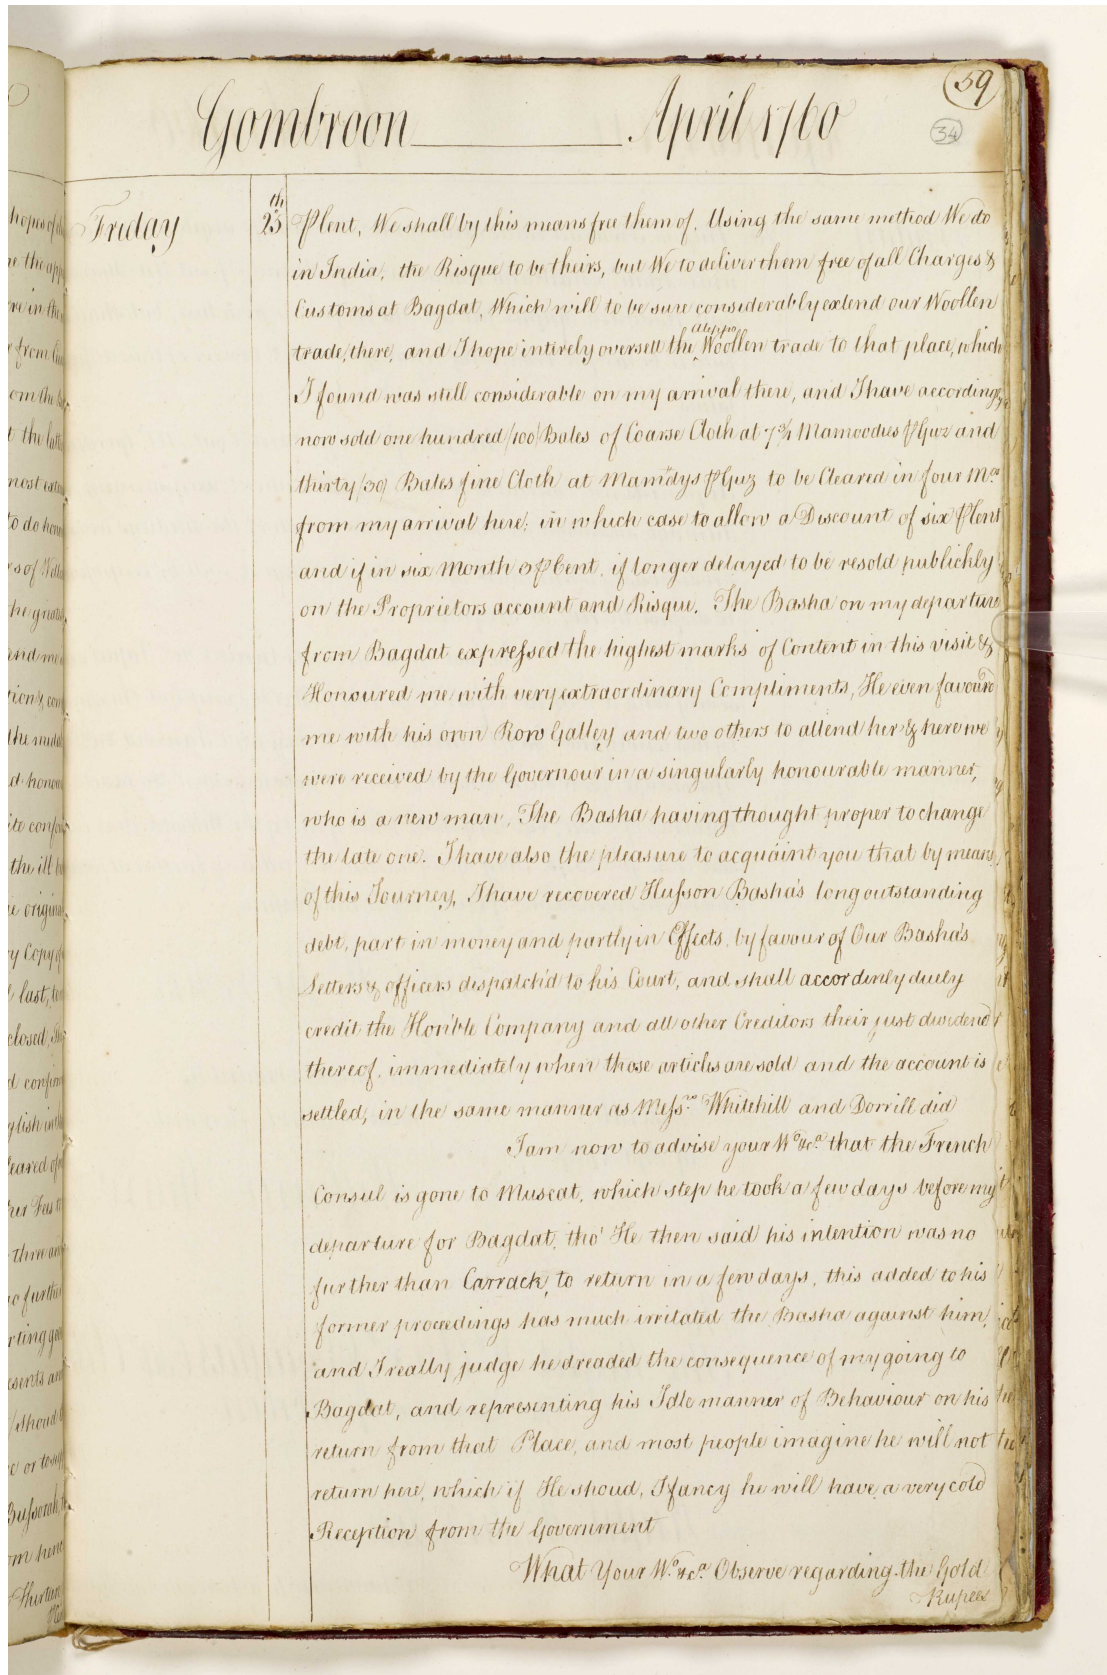 59
34
Gombroon April 1760
Friday 25th ⅌Cent, We shall by this means free them of. Using the same method We do
in India, the Risque to be theirs, but We to deliver them free of all Charges &
Customs at Bagdat, Which will to be sure considerably extend our Woollen
trade, there, and I hope intirely oversett the Aleppo Woollen trade to that place, which
I found was still considerable on my arrival there, and I have according
now sold one hundred /100/ Bales of Coarse Cloth at 7¾ Mamoodies ⅌ Guz and
thirty /30/ Bales fine Cloth at Mamdys ⅌ Guz to be Cleared in four Mos
from my arrival here; in which case to allow a Discount of six ⅌Cent
and if in six Month 3 ⅌Cent. if longer delayed to be resold publickly
on the Proprietors account and Risque. The Basha on my departure
from Bagdat expressed the highest marks of Content in this visit &
Honoured me with very extraordinary Compliments, He even favour'd
me with his own Row Galley and two others to attend her & here we
were received by the Governour in a singularly honourable manner,
who is a new man, The Basha having thought proper to change
the late one. I have also the pleasure to acquaint you that by means
of this Journey, I have recovered Husson Basha's long outstanding
debt, part in money and partly in Effects, by favour of Our Basha's
Letters & officers dispatch'd to his Court, and shall accordinly duely
credit the Hon'ble Company and all other Creditors their just dividend
thereof, immediately when those articles are sold and the account is
settled, in the same manner as Messrs Whitehill and Dorrill did
I am now to advise your Wo &ca that the French
Consul is gone to Muscat, which step he took a few days before my
departure for Bagdat, tho' He then said his intention was no
further than Carrack, to return in a few days, this added to his
former proceedings has much irritated the Basha against him,
and I really judge he dreaded the consequence of my going to
Bagdat, and representing his Idle manner of Behaviour on his
return from that Place, and most people imagine he will not
return here, which if He shoud, I fancy he will have a very cold
Reception from the Government
What Your Wo &ca Observe regarding the Gold
Rupees